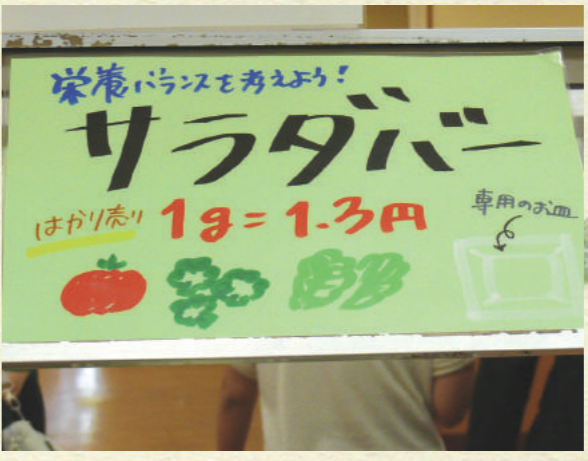 栄養バランスを考えよう!
サラダバー
はかり売り 1g=1.3円
専用のお皿